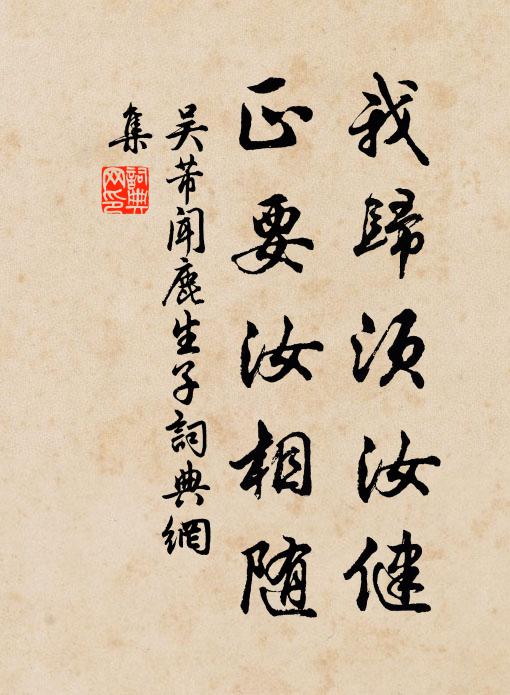 我歸須汝健
正要汝相随
吴芾闻鹿生子詞典網
集
詞典
网印